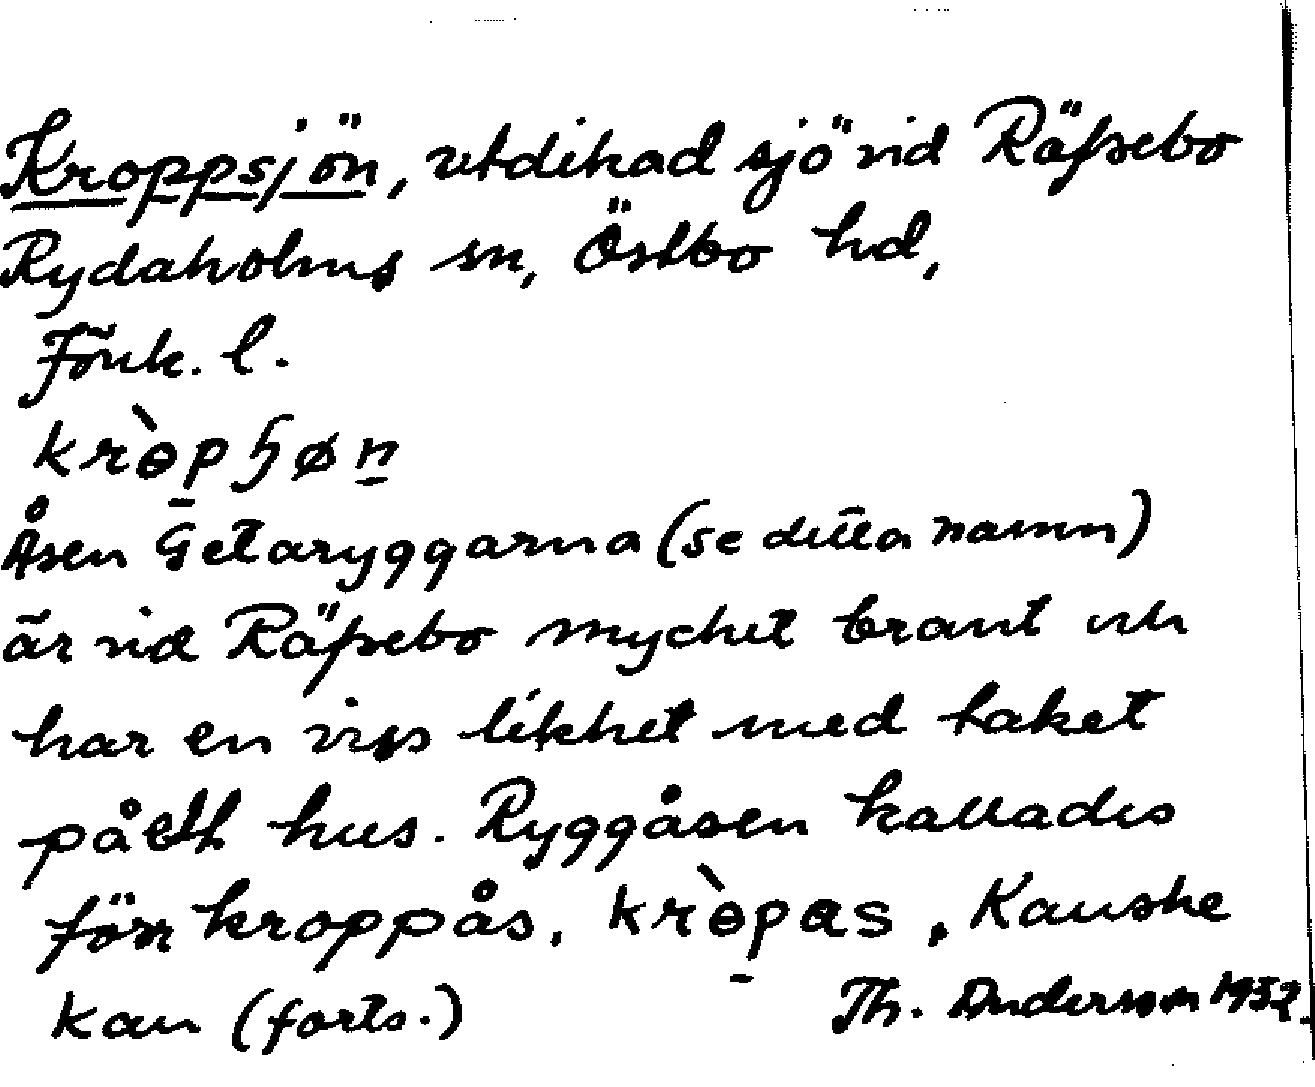 Kroppsjön, utdikad sjö vid Räfsebo
Rydaholms sn, Östbo hd,
Jönk. l.
krɵ̀pɧøn
Åsen Getaryggarna (se detta namn)
är vid Räfsebo mycket brant och
har en viss likhet med taket
på ett hus. Ryggåsen kallades
förr kroppås, krɵ̀pas, Kanske
kan (forts.) Th. Anderson 1932.